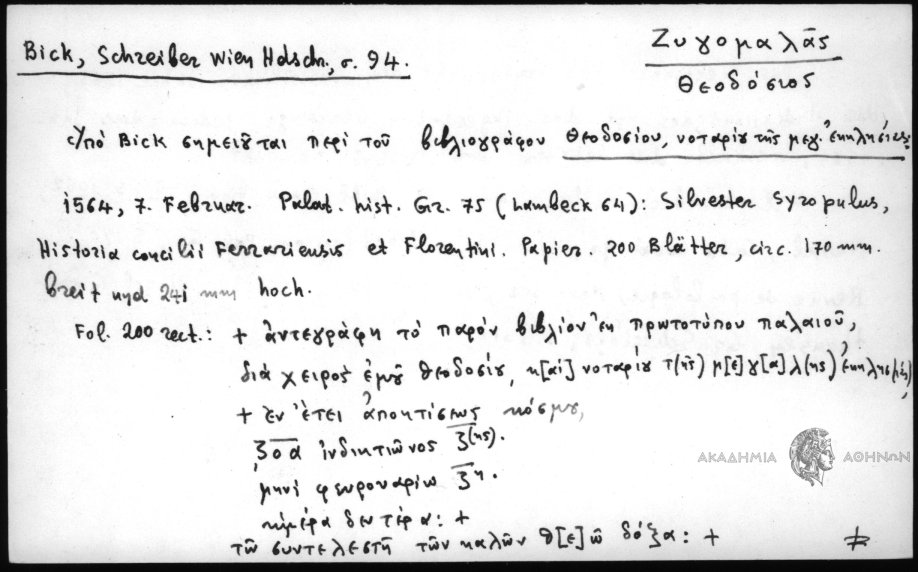 Bick, Schreiber Wien Hdschr., σ. 94.
Ζυγομαλᾶς
Θεοδόσιος
Ὑπό Bick σημειοῦται περί τοῦ βιβλιογράφου Θεοδοσίου, νοταρίου τῆς μεγ. ἐκκλησίας
1564, 7. Februar. Palat. hist. Gr. 75 (Lambeck 64): Silvester Syropulus,
Historia concilii Ferrariensis et Florentini. Papier. 200 Blätter, circ. 170 mm.
breit und 241 mm hoch.
Fol. 200 rect.: + ἀντεγράφη τό παρόν βιβλίον ἐκ πρωτοτύπου παλαιοῦ,
διά χειρός ἐμοῦ θεοδοσίου, κ[αί] νοταρίου τ(ῆς) μ[ε]γ[ά]λ(ης) ἐκκλησ(ίας),
+ ἐν ἔτει ἀποκτίσεως κόσμου,
ζοα ἰνδικτιῶνος ζ(ης).
μηνί φευρουαρίω ζη.
ἡμέρα δευτέρα: +
τῶ συντελεστῆ τῶν καλῶν θ[ε]ῶ δόξα: +
ΑΚΑΔΗΜΙΑ ΑΘΗΝΩΝ